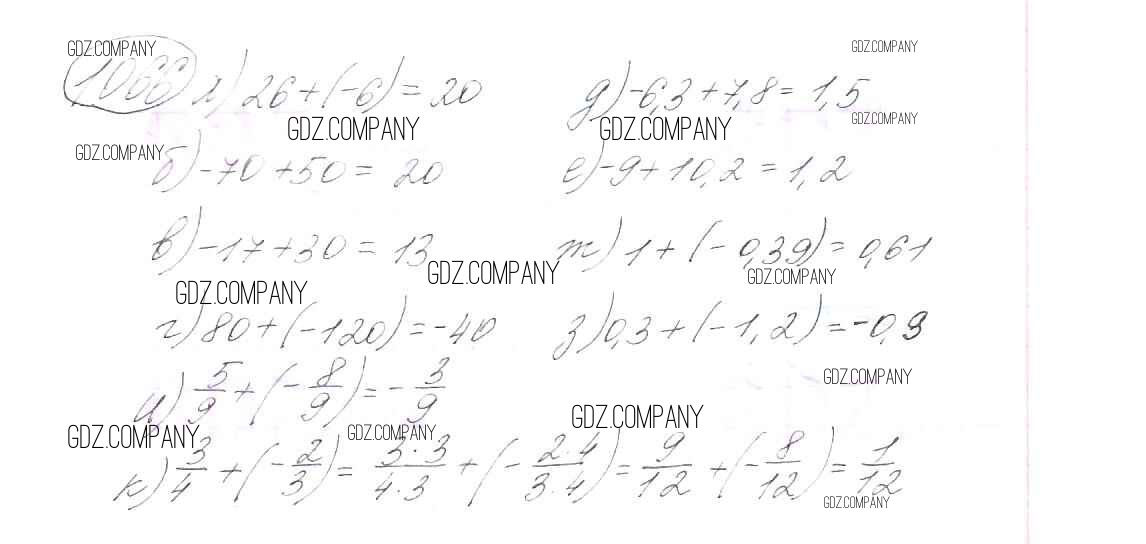 GDZ.COMPANY GDZ.COMPANY
1066 а) 26 + (-6) = 20 д) -6,3 + 7,8 = 1,5
GDZ.COMPANY GDZ.COMPANY GDZ.COMPANY
GDZ.COMPANY б) -70 + 50 = 20 е) -9 + 10,2 = 1,2
в) -17 + 30 = 13 ж) 1 + (-0,39) = 0,61
GDZ.COMPANY GDZ.COMPANY
GDZ.COMPANY
г) 80 + (-120) = -40 з) 0,3 + (-1,2) = -0,9
и) 5/9 + (-8/9) = -3/9
GDZ.COMPANY
GDZ.COMPANY GDZ.COMPANY GDZ.COMPANY
к) 3/4 + (-2/3) = 3·3/4·3 + (-2·4/3·4) = 9/12 + (-8/12) = 1/12
GDZ.COMPANY